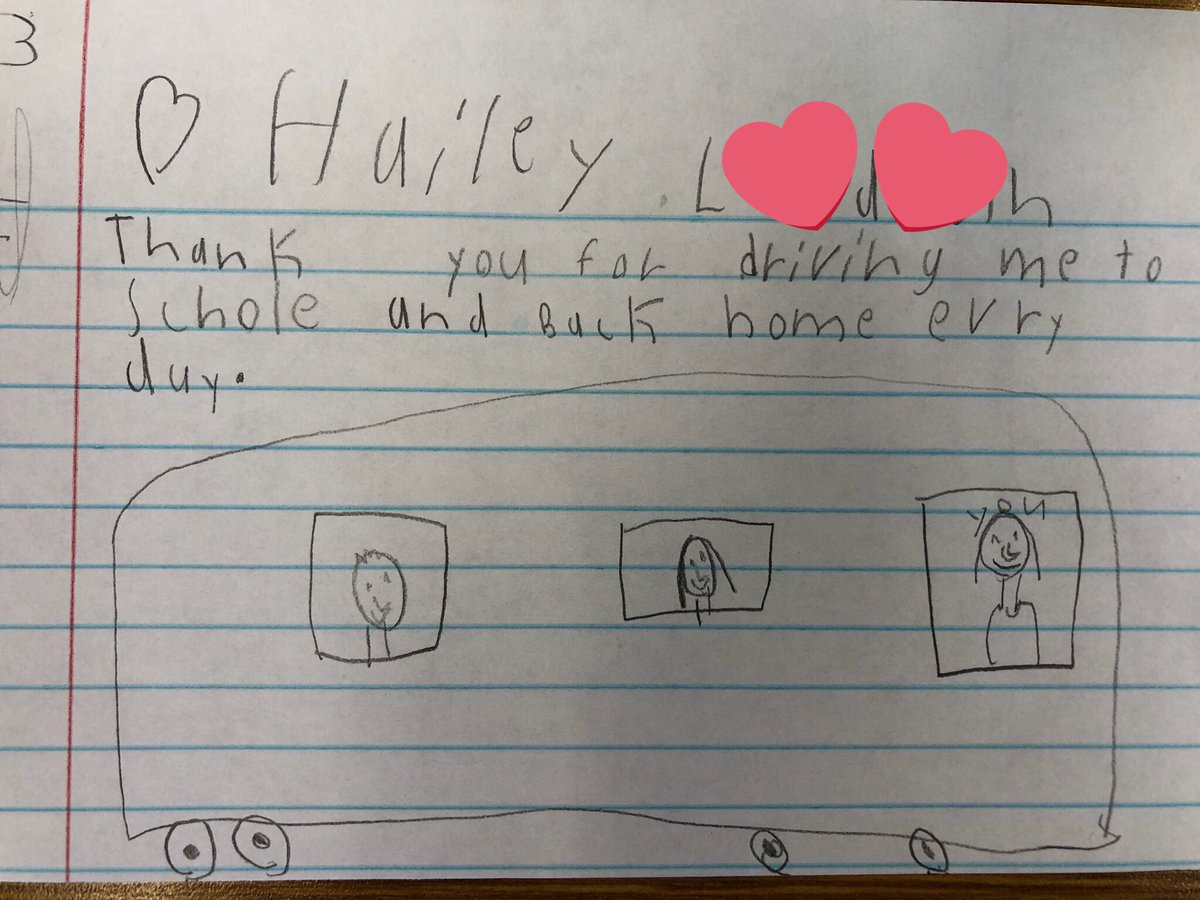 3
♡ Hailey
Thank you for driving me to
schole and back home evry
duy.
you